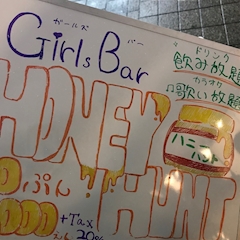 ガールズ バー
Girls Bar
ドリンク
飲み放題
カラオケ
歌い放題
HONEY
HUNT
ハニー
ハント
0ぷん
000
+Tax
20%